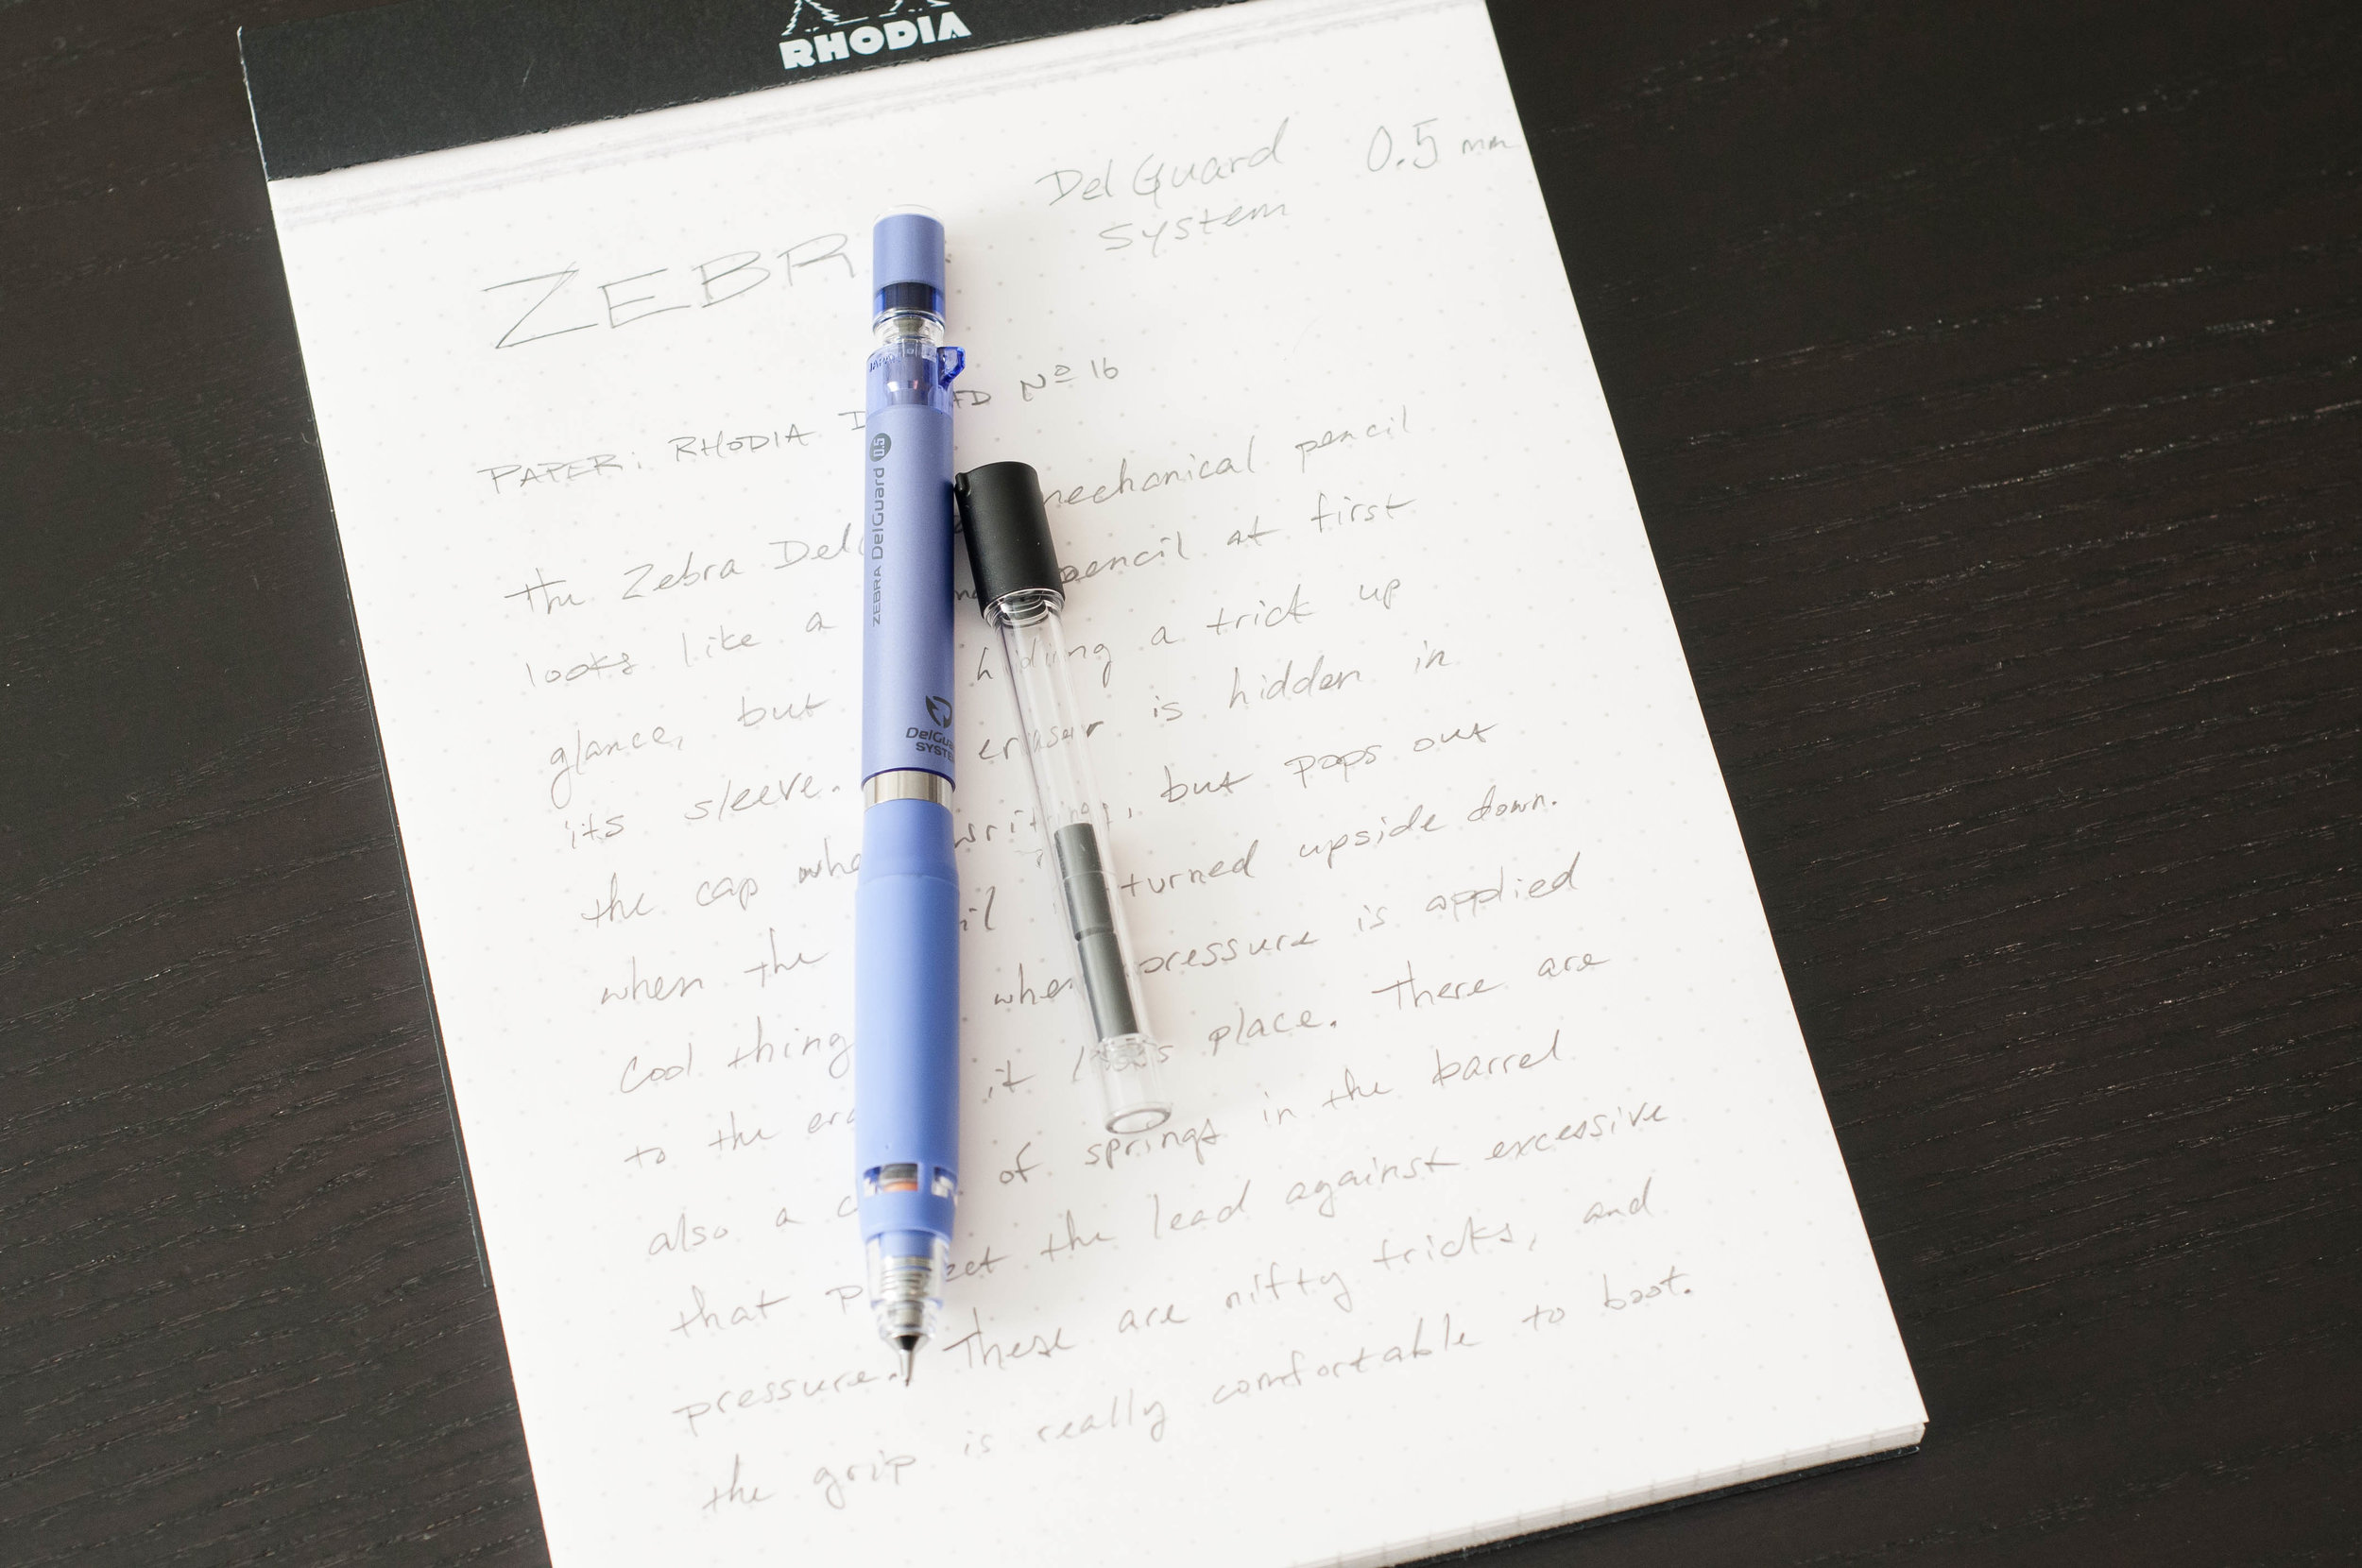 RHODIA
DelGuard 0.5 mm
System
ZEBR
PAPER: RHODIA AD Nº 16
The Zebra Del mechanical pencil
looks like a pencil at first
glance, but hiding a trick up
its sleeve. eraser is hidden in
the cap whe writing, but pops out
when the il turned upside down.
Cool thing when pressure is applied
to the era it place. There are
also a c of springs in the barrel
that p ect the lead against excessive
pressure. These are nifty tricks, and
the grip is really comfortable to boot.
JAPAN
ZEBRA DelGuard 0.5
DelGua
SYSTE